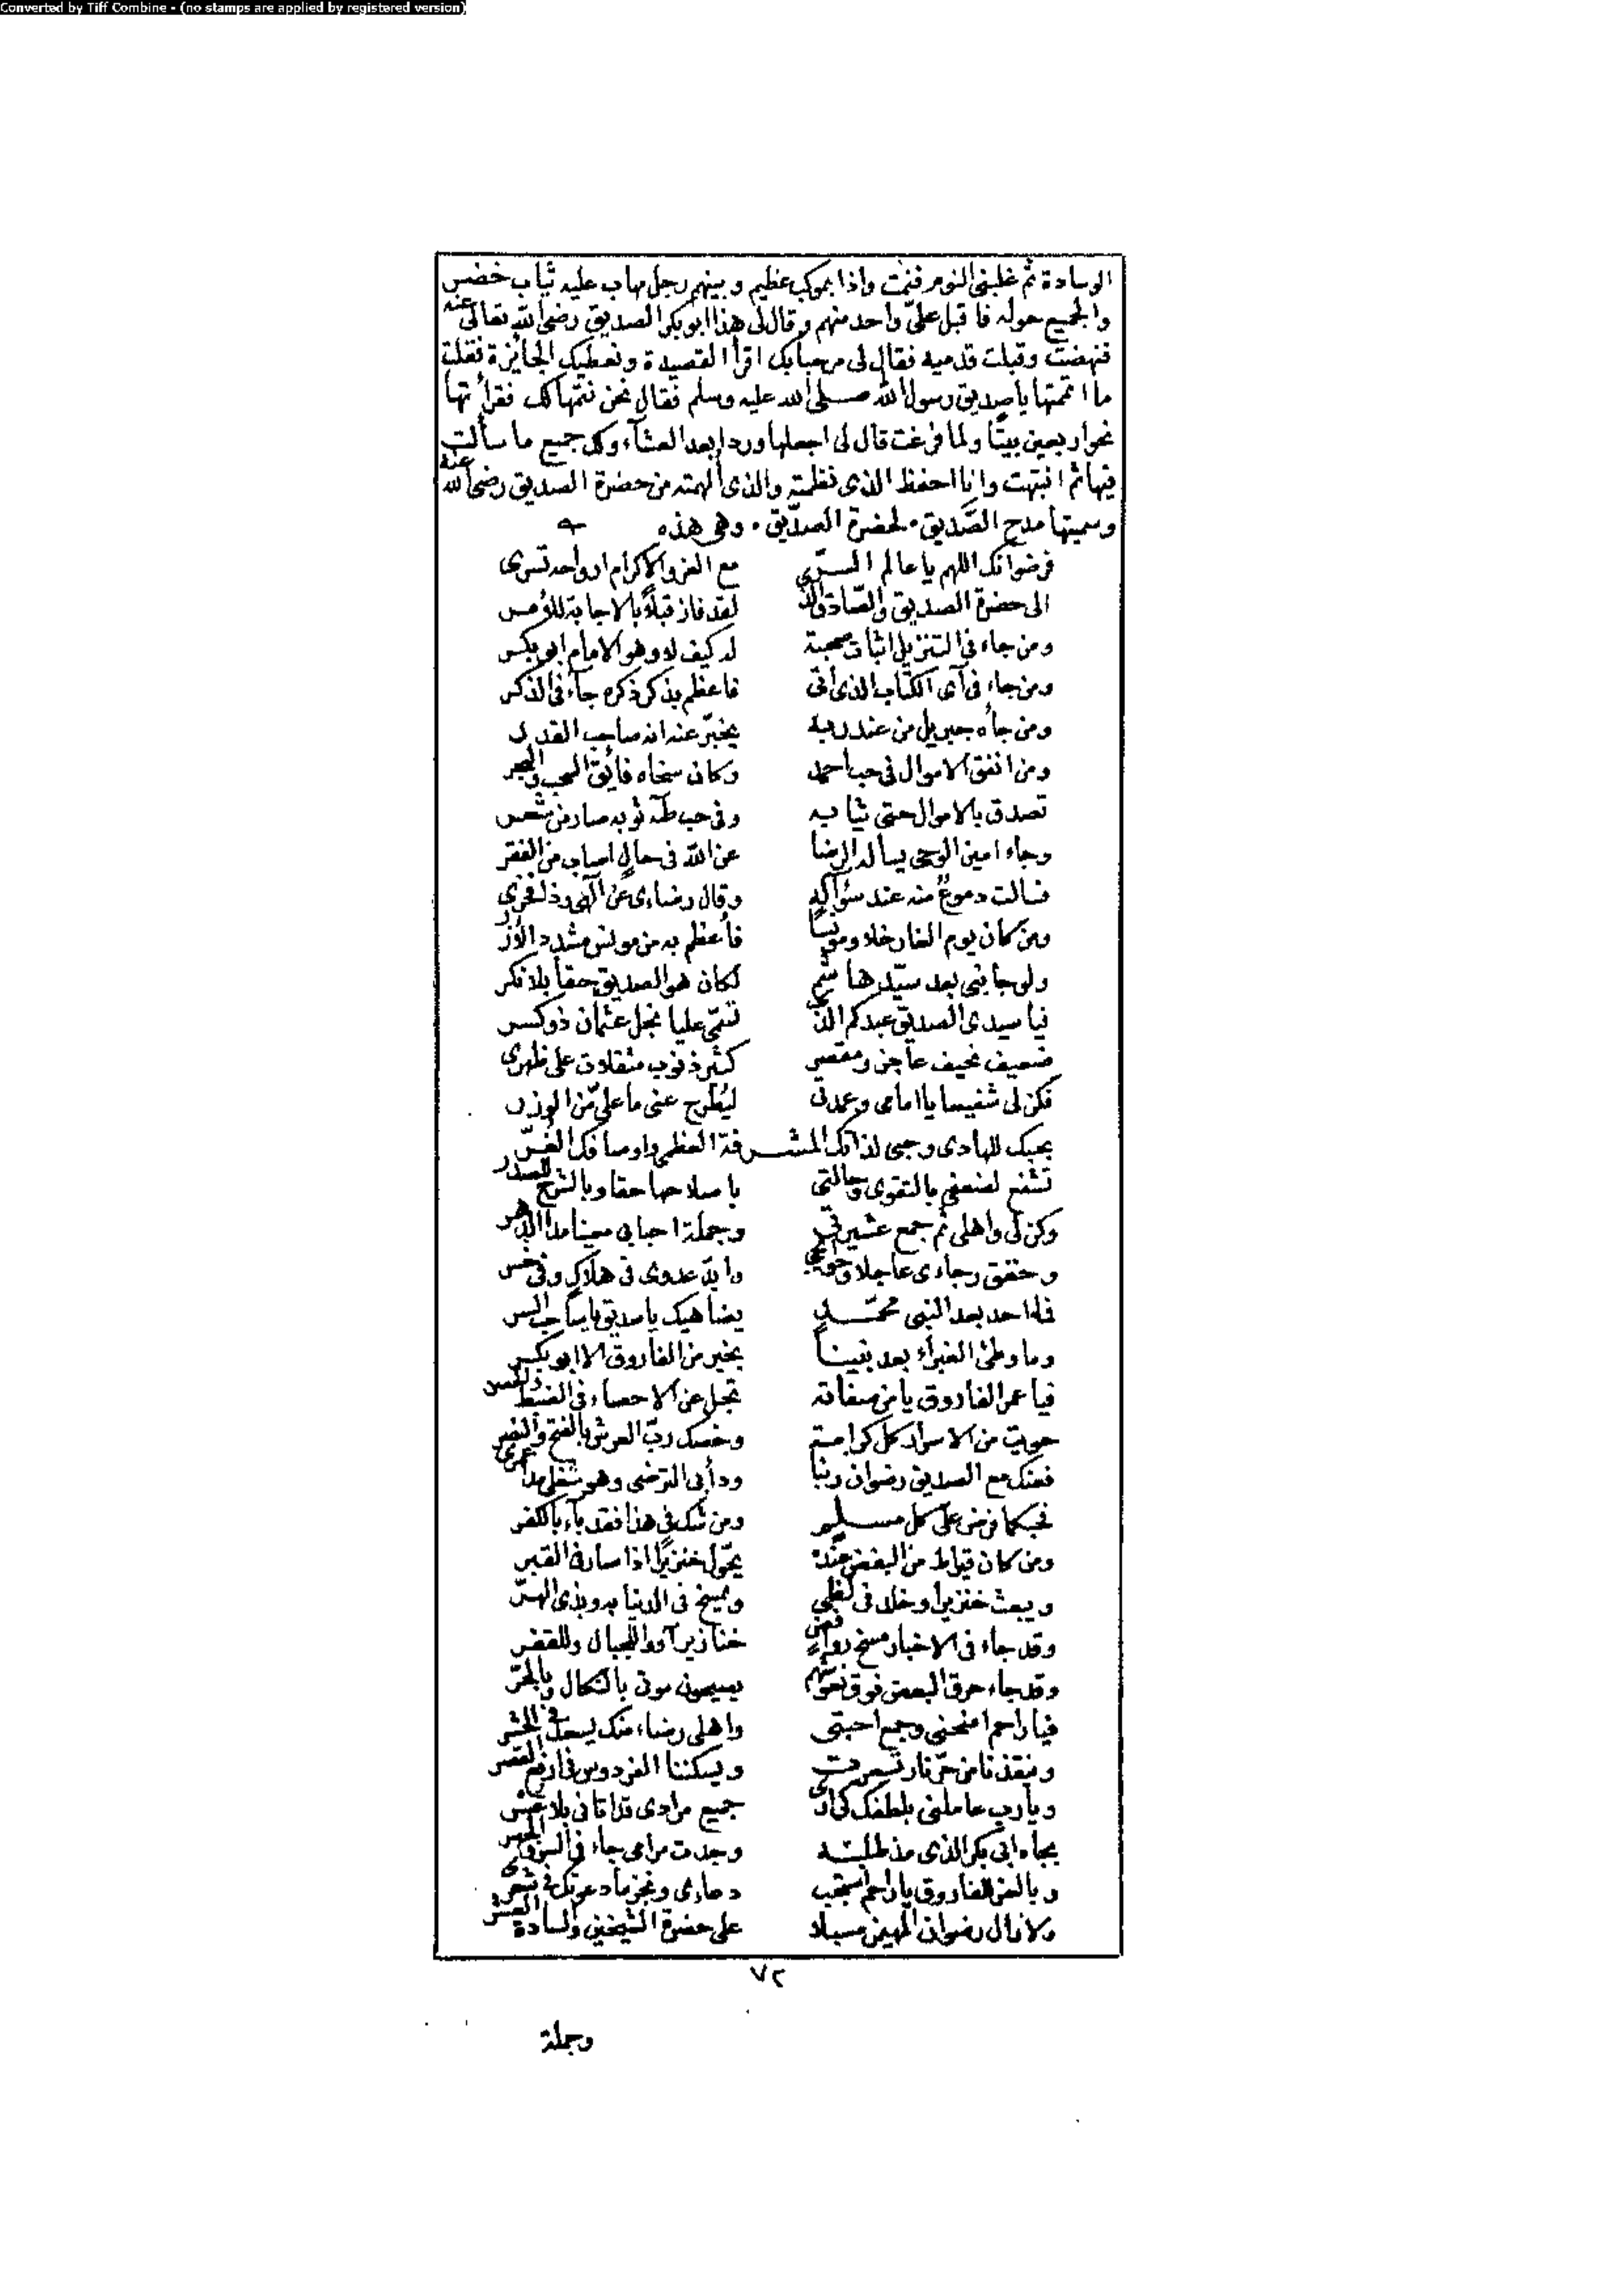 Converted by Tiff Combine - (no stamps are applied by registered version)
الوسادة ثم غلبنى النوم فنمت واذا بموكب عظيم وبينهم رجل مهاب عليه ثياب خضر
والجميع حوله فاقبل علىّ واحد منهم وقال لى هذا ابوبكر الصديق رضى الله تعالى عنه
فنهضت وقبلت قدميه فقال لى مرحبا بك اقرأ القصيدة ونعطيك الجائزة فقلت
ما اتممتها يا صديق رسول الله صلى الله عليه وسلم فقال نحن نتمها لك فقرأتها
نحو اربعين بيتا ولما فرغت قال لى اجعلها وردا بعد العشآء وكل جميع ما سألت
فيها ثم انتبهت وانا احفظ الذى نظمته والذى ألهمته من حضرة الصديق رضى الله عنه
وسميتها مدح الصّديق ٠ لحضرة الصدّيق ٠ وهى هذه
فرضوانك اللهم يا عالم السرّى مع العز والاكرام ارواحه تسرى
الى حضرة الصديق والصادق الذى لقد فاز قبلاً بالاجابة للأمر
ومن جاء فى التنزيل اثبات صحبة له كيف لا وهو الامام ابو بكر
ومن جاء فى آى الكتاب الذى أتى فاعظم بذكر ذكره جآء فى الذكر
ومن جاءه جبريل من عند ربه يخبّر عنه انه صاحب القدر
ومن انفق الاموال فى حب احمد وكان سخاه فائق السحب والبحر
تصدق بالاموال حتى ثيابه وفى حب طٰه ثوبه صار من شعر
وجاء امين الوحى يسأله الرضا عن الله فى حالٍ اصاب من الفقر
فسالت دموعٌ منه عند سؤآله وقال رضاءى عن آلهى وذا فخرى
ومن كان يوم الغار خلا ومونسا فأعظم به من مونس مشدد الأزر
ولو جا نبى بعد سيّد هاشم لكان هو الصديق حقا بلا نكر
فيا سيدى الصديق عبدكم الذى تسمّى عليا نجل عثمان ذو كسر
ضعيف نحيف عاجز ومقصر كثير ذنوب مثقلات على ظهرى
فكن لى شفيعا يا امامى وعمدتى ليُطرح عنى ما علىّ من الوزر
بحبك للهادى وحبى لذاتك المشـرفة العظمى واوصافك الغُرّ
تشفع لضعفى بالتقوى وحالتى باصلاحها حقا وبالشرح للصدر
وكن لى واهلى ثم جمع عشيرتى وجملة احبابى معينا مدا الدهر
وحقق رجاءى عاجلا وحوائجى وابد عدوى فى هلاك وفى خسر
فلا احد بعد النبى محمّـد يضاهيك يا صديق يا صاحب السر
وما وطئ الغبرآء بعد نبينا بخير من الفاروق الا ابو بكر
فيا عمر الفاروق يا من صفاته تجل عن الاحصاء فى الضبط والحصر
حويت من الاسرار كل كرامة وخصك ربّ العرش بالفتح والنصر
فعنك مع الصديق رضوان ربنا ودأبى الترضى وهو شغلى مدا عمرى
فحبكما فرض على كل مسـلم ومن شك فى هذا فقد بآء بالكفر
ومن كان قيراط من البغض عنده يحوّل خنزيرا اذا صار فى القبر
ويبعث خنزيرا وخلد فى لظى ويمسخ فى الدنيا به وبذى الهرّ
وقد جاء فى الاخبار مسخ روافض خنازير آووا للجبال وللقفر
وقد جاء حرق البعض فوق نعوشهم يصيحون موتى بالنكال وبالحرّ
فيا راحم امنحنى وجمع احبتى واهلى رضاء منك يسعد فى الحشر
ومنقذنا من حرّ نار تسعرت ويسكننا الفردوس فى ارفع القصر
ويارب عاملنى بلطفك كى ارى جميع مرادى قد اتانى بلا عسر
بجاه ابى بكر الذى مذ طلبتـه وجدت مرامى جاء فى السر والجهر
وبالعز الفاروق يا راحم استجب دعاءى ونجز ما دعوتك فى شعرى
ولا زال رضوان المهيمن مسبلا على حضرة الشيخين والسادة العشر
٧٢
وجملة